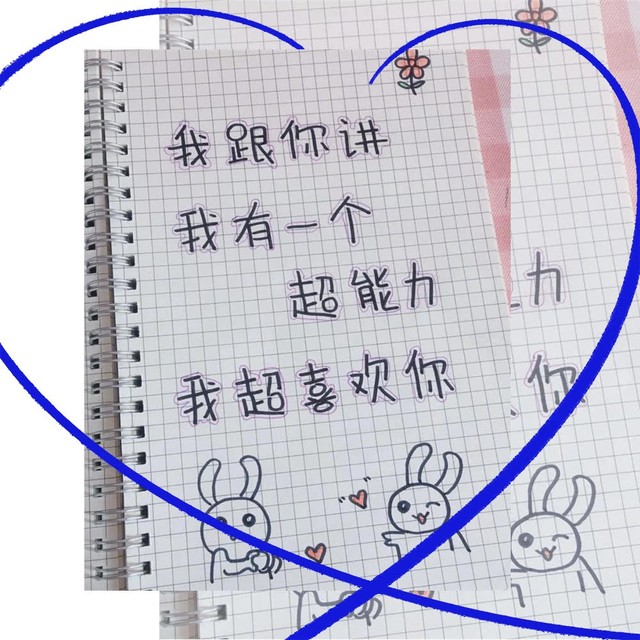 我跟你讲
我有一个
超能力
我超喜欢你
力
你